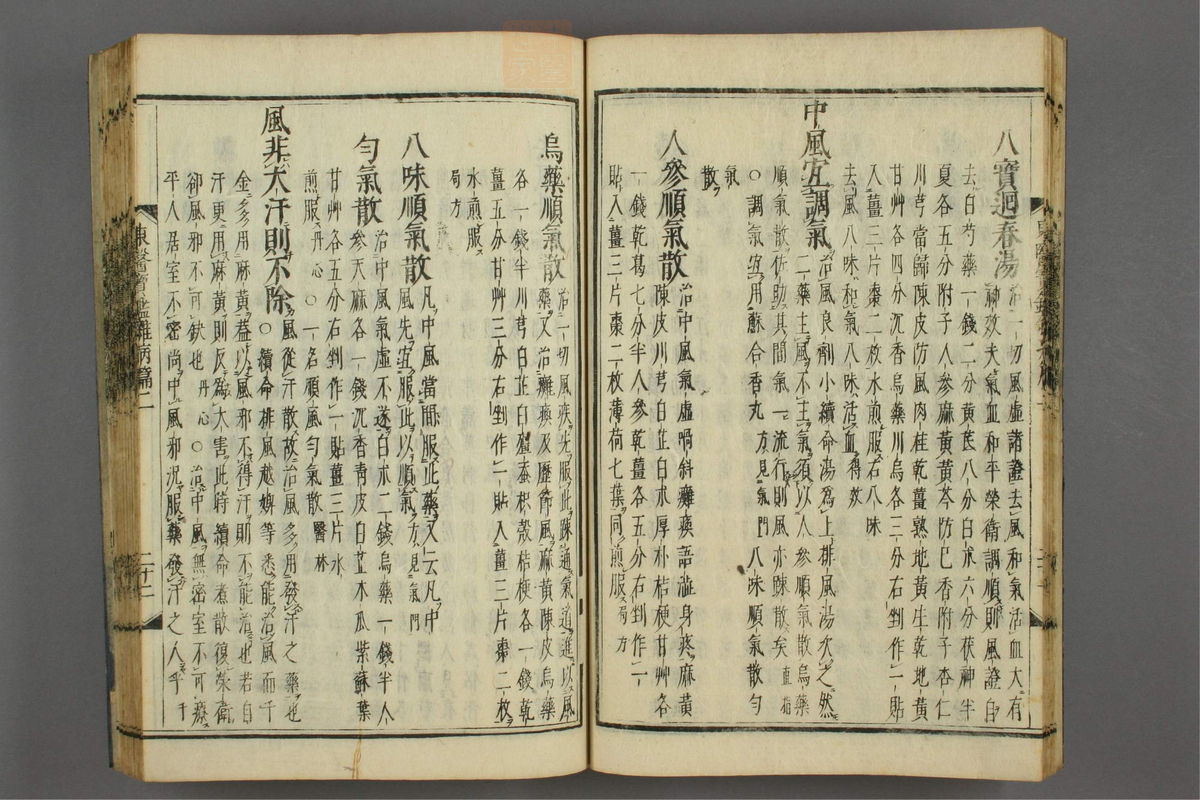 八寶迴春湯治一切風虛諸證去風和氣活血大有
神效夫氣血和平榮衛調順則風證自
去白芍藥一錢二分黃芪八分白朮六分茯神半
夏各五分附子人參麻黃黃芩防已香附子杏仁
川芎當歸陳皮防風肉桂乾薑熟地黃生乾地黃
甘艸各四分沉香烏藥川烏各三分右剉作一貼
入薑三片棗二枚水煎服右八味
去風八味和氣八味活血得效
中風宜調氣治風良劑小續命湯爲上排風湯次之然
二藥主風不主氣須以人參順氣散烏藥
順氣散佐助其間氣一流行則風亦踈散矣直指
○調氣宜用蘇合香丸方見氣門八味順氣散勻
氣
散
人參順氣散治中風氣虛喎斜癱瘓語澁身疼麻黃
陳皮川芎白芷白朮厚朴桔梗甘艸各
一錢乾葛七分半人參乾薑各五分右剉作一
貼入薑三片棗二枚薄荷七葉同煎服局方
烏藥順氣散治一切風疾先服此踈通氣道進以風
藥又治癱瘓及歷節風麻黃陳皮烏藥
各一錢半川芎白芷白殭蚕枳殼桔梗各一錢乾
薑五分甘艸三分右剉作一貼入薑三片棗二枚
水煎服
局方
八味順氣散凡中風當間服此藥又云凡中
風先宜服此以順氣方見氣門
勻氣散治中風氣虛不遂白朮二錢烏藥一錢半人
參天麻各一錢沉香靑皮白芷木瓜紫蘇葉
甘艸各五分右剉作一貼薑三片水
煎服丹心○一名順風勻氣散醫林
風非大汗則不除風從汗散故治風多用發汗之藥也
○續命排風越婢等悉能治風而千
金多用麻黃蓋以風邪不得汗則不能治也若自
汗更用麻黃則反爲大害此時續命煮散復榮衛
卻風邪不可缺也丹心○治中風無密室不可療
平人居室不密尚中風邪況服藥發汗之人乎千
東醫寶鑑雜病篇二
二十二